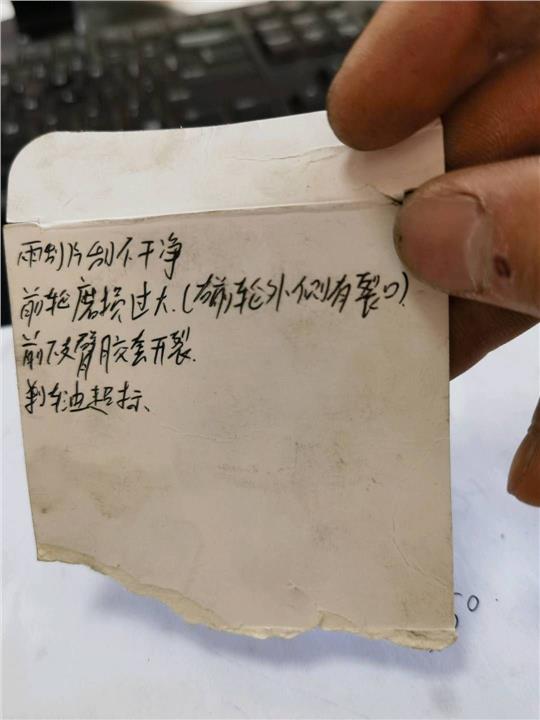 雨刮片刮不干净
前轮磨损过大.(右前轮外侧有裂口)
前下支臂胶套开裂.
刹车油超标、